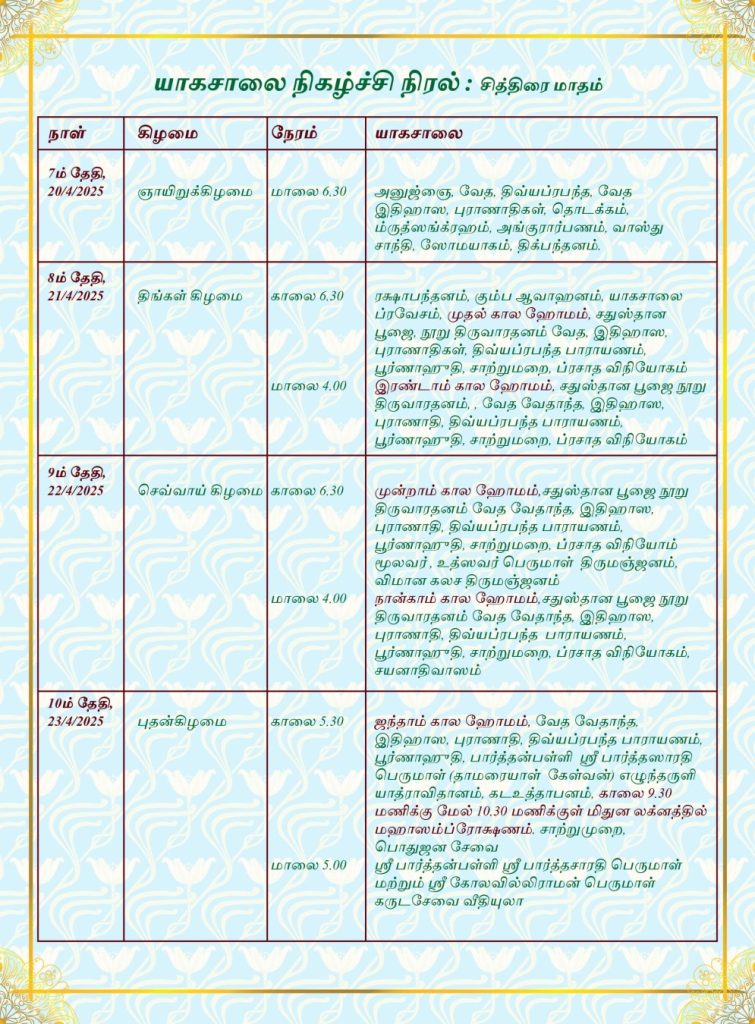 யாகசாலை நிகழ்ச்சி நிரல் : சித்திரை மாதம்
நாள் கிழமை நேரம் யாகசாலை
7ம் தேதி,
20/4/2025 ஞாயிறுக்கிழமை மாலை 6.30 அனுஜ்ஞை, வேத, திவ்யப்ரபந்த, வேத
இதிஹாஸ, புராணாதிகள், தொடக்கம்,
ம்ருத்ஸங்க்ரஹம், அங்குரார்பணம், வாஸ்து
சாந்தி, ஸோமயாகம், திக்பந்தனம்.
8ம் தேதி,
21/4/2025 திங்கள் கிழமை காலை 6.30 ரக்ஷாபந்தனம், கும்ப ஆவாஹனம், யாகசாலை
ப்ரவேசம், முதல் கால ஹோமம், சதுஸ்தான
பூஜை, நூறு திருவாரதனம் வேத, இதிஹாஸ,
புராணாதிகள், திவ்யப்ரபந்த பாராயணம்,
பூர்ணாஹுதி, சாற்றுமறை, ப்ரசாத விநியோகம்
மாலை 4.00 இரண்டாம் கால ஹோமம், சதுஸ்தான பூஜை நூறு
திருவாரதனம், , வேத வேதாந்த, இதிஹாஸ,
புராணாதி, திவ்யப்ரபந்த பாராயணம்,
பூர்ணாஹுதி, சாற்றுமறை, ப்ரசாத விநியோகம்
9ம் தேதி,
22/4/2025 செவ்வாய் கிழமை காலை 6.30 முன்றாம் கால ஹோமம்,சதுஸ்தான பூஜை நூறு
திருவாரதனம் வேத வேதாந்த, இதிஹாஸ,
புராணாதி, திவ்யப்ரபந்த பாராயணம்,
பூர்ணாஹுதி, சாற்றுமறை, ப்ரசாத விநியோம்
மூலவர் , உத்ஸவர் பெருமாள் திருமஞ்ஜனம்,
விமான கலச திருமஞ்ஜனம்
மாலை 4.00 நான்காம் கால ஹோமம்,சதுஸ்தான பூஜை நூறு
திருவாரதனம் வேத வேதாந்த, இதிஹாஸ,
புராணாதி, திவ்யப்ரபந்த பாராயணம்,
பூர்ணாஹுதி, சாற்றுமறை, ப்ரசாத விநியோகம்,
சயனாதிவாஸம்
10ம் தேதி,
23/4/2025 புதன்கிழமை காலை 5.30 ஐந்தாம் கால ஹோமம், வேத வேதாந்த,
இதிஹாஸ, புராணாதி, திவ்யப்ரபந்த பாராயணம்,
பூர்ணாஹுதி, பார்த்தன்பள்ளி ஸ்ரீ பார்த்தஸாரதி
பெருமாள் (தாமரையாள் கேள்வன்) எழுந்தருளி
யாத்ராவிதானம், கடஉத்தாபனம், காலை 9.30
மணிக்கு மேல் 10.30 மணிக்குள் மிதுன லக்னத்தில்
மஹாஸம்ப்ரோக்ஷணம். சாற்றுமுறை,
பொதுஜன சேவை
மாலை 5.00 ஸ்ரீ பார்த்தன்பள்ளி ஸ்ரீ பார்த்தசாரதி பெருமாள்
மற்றும் ஸ்ரீ கோலவில்லிராமன் பெருமாள்
கருடசேவை வீதியுலா